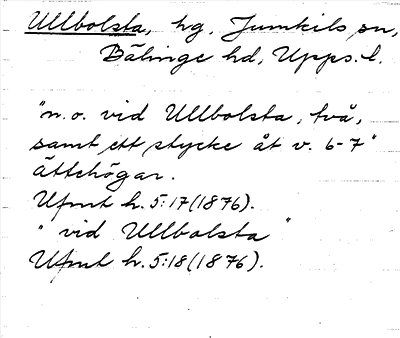 Ullbolsta, hg, Jumkils sn,
Bälinge hd, Upps. l.
"n.o. vid Ullbolsta, två,
samt ett stycke åt v. 6-7"
ättehögar.
Ufmt h. 5:17(1876).
" vid Ullbolsta "
Ufmt h. 5:18(1876).